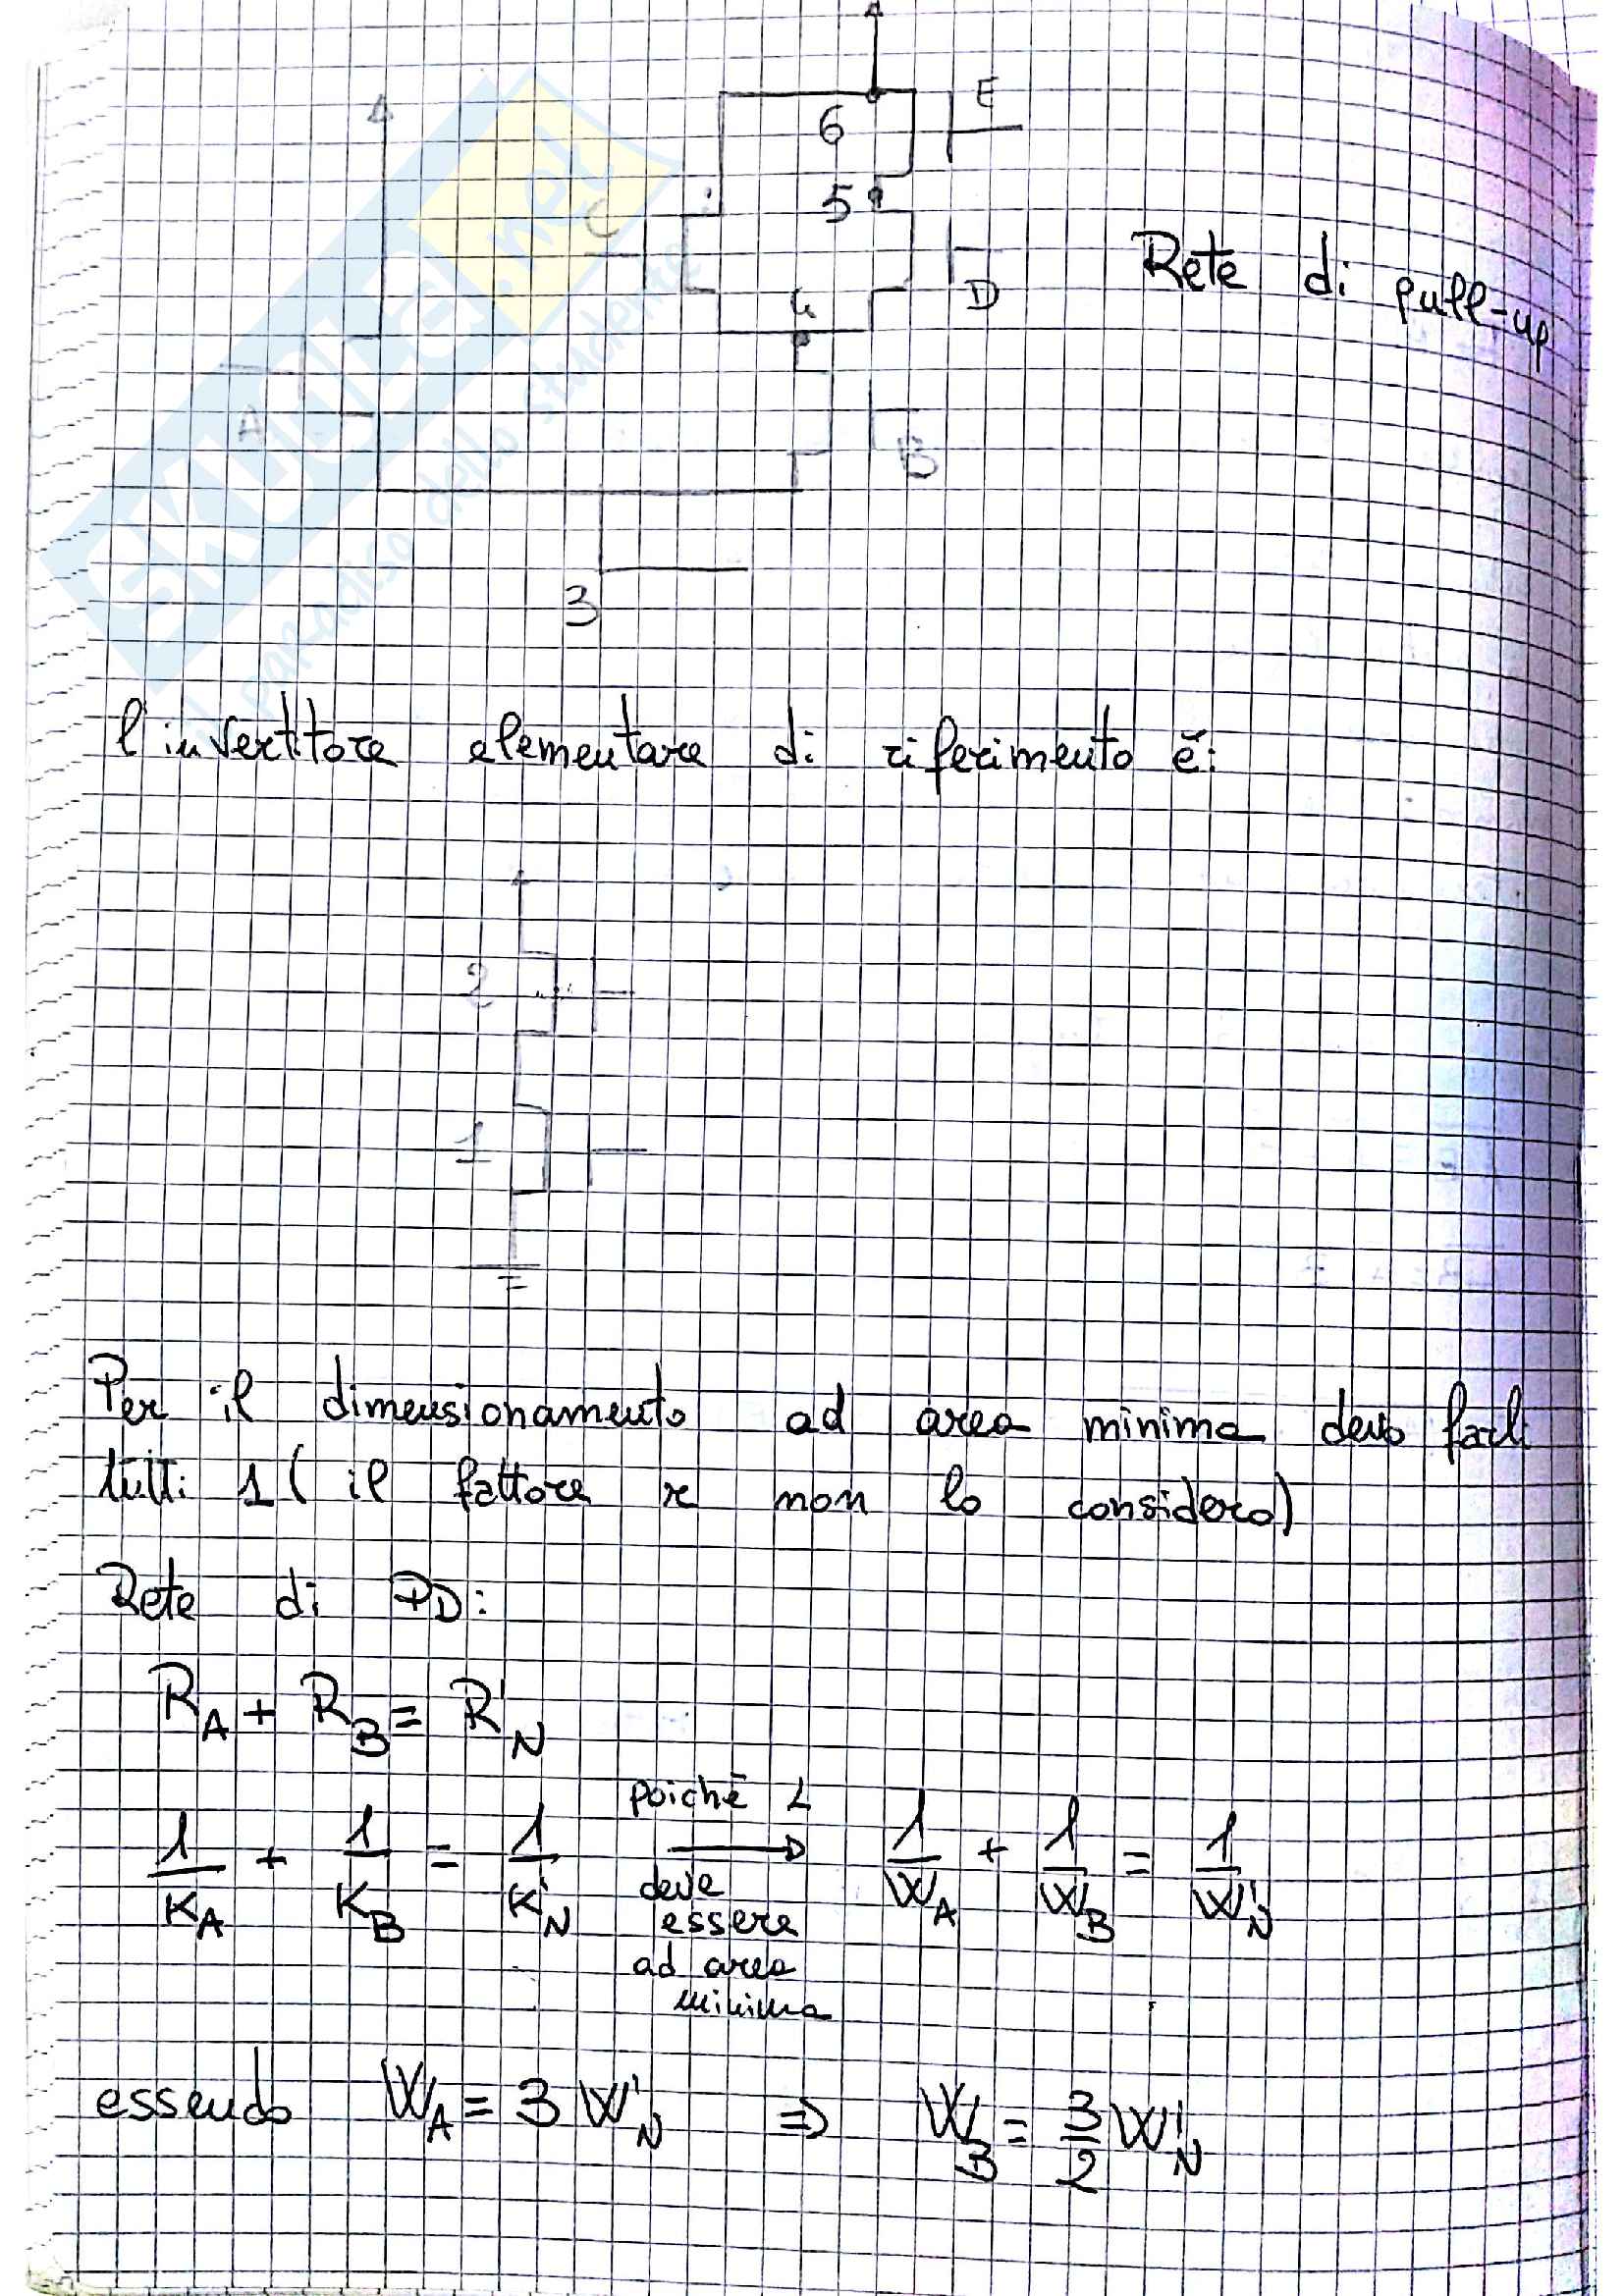 E
6
C
5
D
Rete di pull-up
4
A
B
3
SKUOLA.net
il paradiso dello studente
l'invertitore elementare di riferimento è:
2
1
Per il dimensionamento ad area minima devo farli
tutti 1 ( il fattore r non lo considero)
Rete di PD:
R_A + R_B = R'_N
1/K_A + 1/K_B = 1/K'_N poichè L deve essere ad area minima → 1/W_A + 1/W_B = 1/W'_N
essendo W_A = 3 W'_N ⇒ W_B = 3/2 W'_N